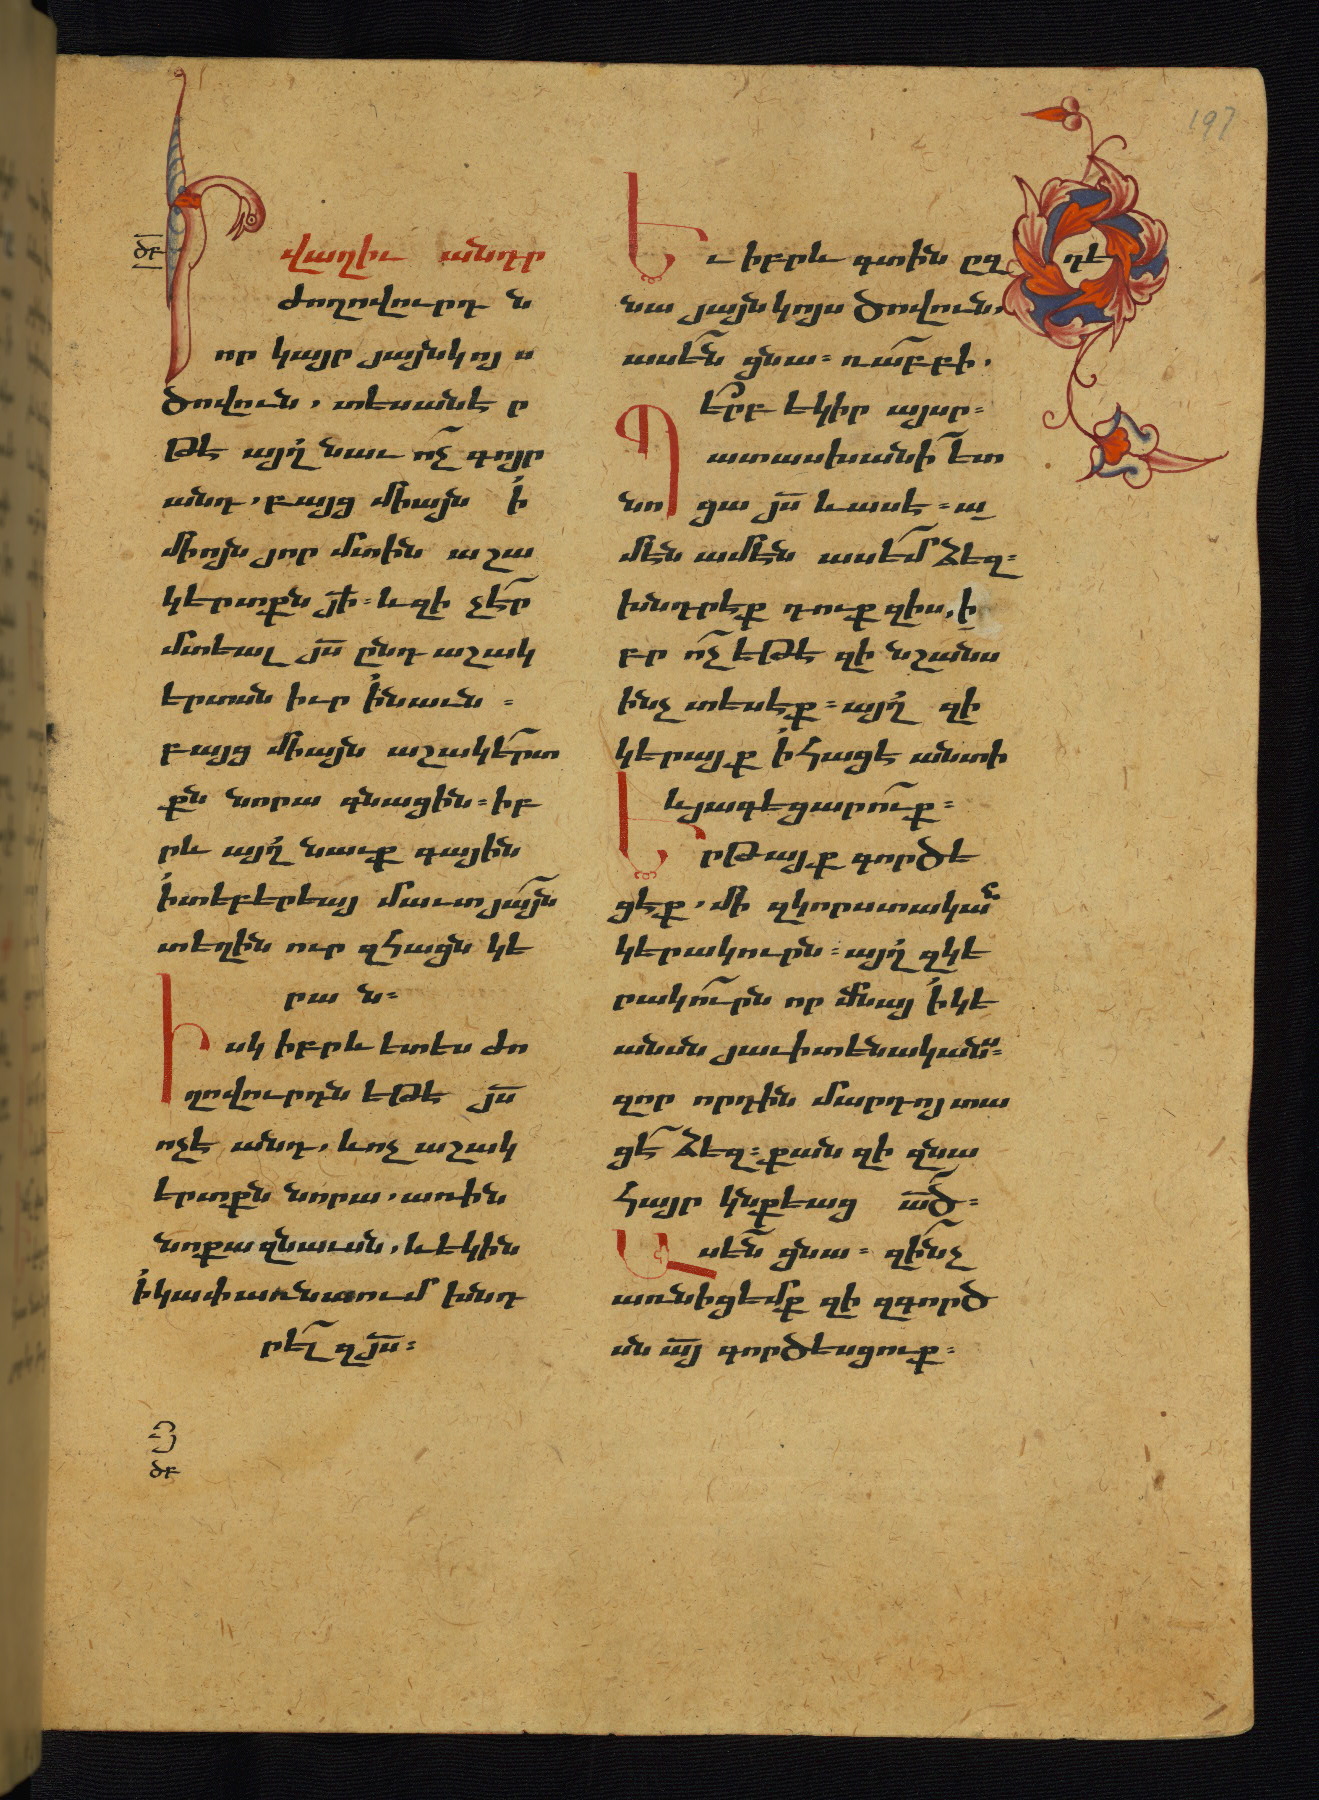 197
ծբ
Ի վաղիւ անդր
ժողովուրդ ն
որ կայր յայնկոյս
ծովուն, տեսանէ ր
թէ այղ նաւ ոչ գոյր
անդ, բայց միայն ի
միոյն յոր մտին աշա
կերտքն յի։ և զի չէր
մտեալ յս ընդ աշակ
երտսն իւր ի նաւն ։
բայց միայն աշակերտ
քն նորա գնացին։ իբ
րև այղ նաւք գային
ի տեբերեայ մաւտ յայն
տեղին ուր զհացն կե
րա ն։
Իսկ իբրև ետես ժո
ղովուրդն եթէ յս
ոչէ անդ, և ոչ աշակ
երտքն նորա, առին
նոքա զնաւսն, և եկին
ի կափառնաում խնդ
րել զյս։
Եւ իբրև գտին ըզ
նա յայնկոյս ծովուն,
ասեն ցնա։ ռաբբի,
երբ եկիր այսր։
Պատասխանի ետ
նոցա յս և ասէ։ ա
մէն ամէն ասեմ ձեզ։
խնդրէք դուք զիս, ի
բր ոչ եթէ զի նշանս
ինչ տեսէք։ այղ զի
կերայք ի հացէ անտի
և յագեցարուք։
Երթայք գործե
ցէք, մի զկորստական
կերակուրն։ այղ զկե
րակուրն որ մնայ ի կե
անսն յաւիտենականս։
զոր որդին մարդոյ տա
ցէ ձեզ։ քան զի զնա
հայր կնքեաց ած։
Ասեն ցնա։ զինչ
առնիցեմք զի զգործ
սն այ գործեսցուք։
դէ
ծբ